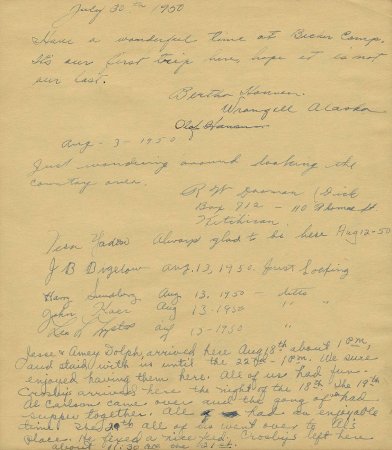 July 30th 1950
Have a wonderful time at Becker Camp.
It's our first trip here, hope it is not
our last.
Bertha Hansen
Wrangell Alaska
Olof Hansen
Aug - 3 - 1950
Just wandering around looking the
country over.
R W Dooman (Dick
Box 712 - 110 Thomas St
Ketchikan
Vera Always glad to be here Aug 12-50
J B Bigelow Aug. 13, 1950. Just Looking
Harry Aug 13. 1950 - ditto
John Aug 13-1950 " "
Aug 13-1950 - " "
Jesse & Amey Dolph, arrived here Aug 18th about 1 P.M,
and staid with us until the 22nd - 1 P.M. We sure
enjoyed having them here. All of us had fun.
Crosbys arrived here the night of the 18th. The 19th
Al Carlson came over and the gang of had
supper together. All had an enjoyable
time. The 20th all of us went over to Al's
place. He fixed a nice feed. Crosbys left here
about 11:30 AM the 21st.